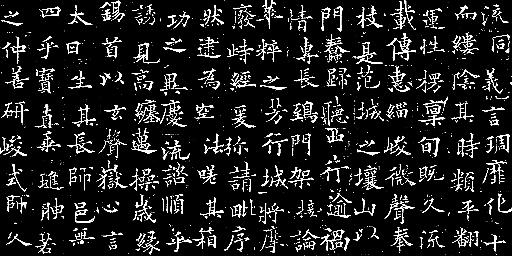 流同義言琱靡化十
而縷陰其時類平翻
運性楞稟旬既久流
載傳惠緇峻微聲奉
枝是范城之壤山以
門蠢歸聽西行逾禍
情專長鵄門架論
華粹之芳行城將摩
廢峙經爰弥請毗序
然逮為空法嗟其箱
功之異慶流諮順乎
誘見高纏邁操歲緣
錫首以玄聲嶽心言
太日生其長師邑無
四乎寶真乘璡融若
之仲善研峻式師久